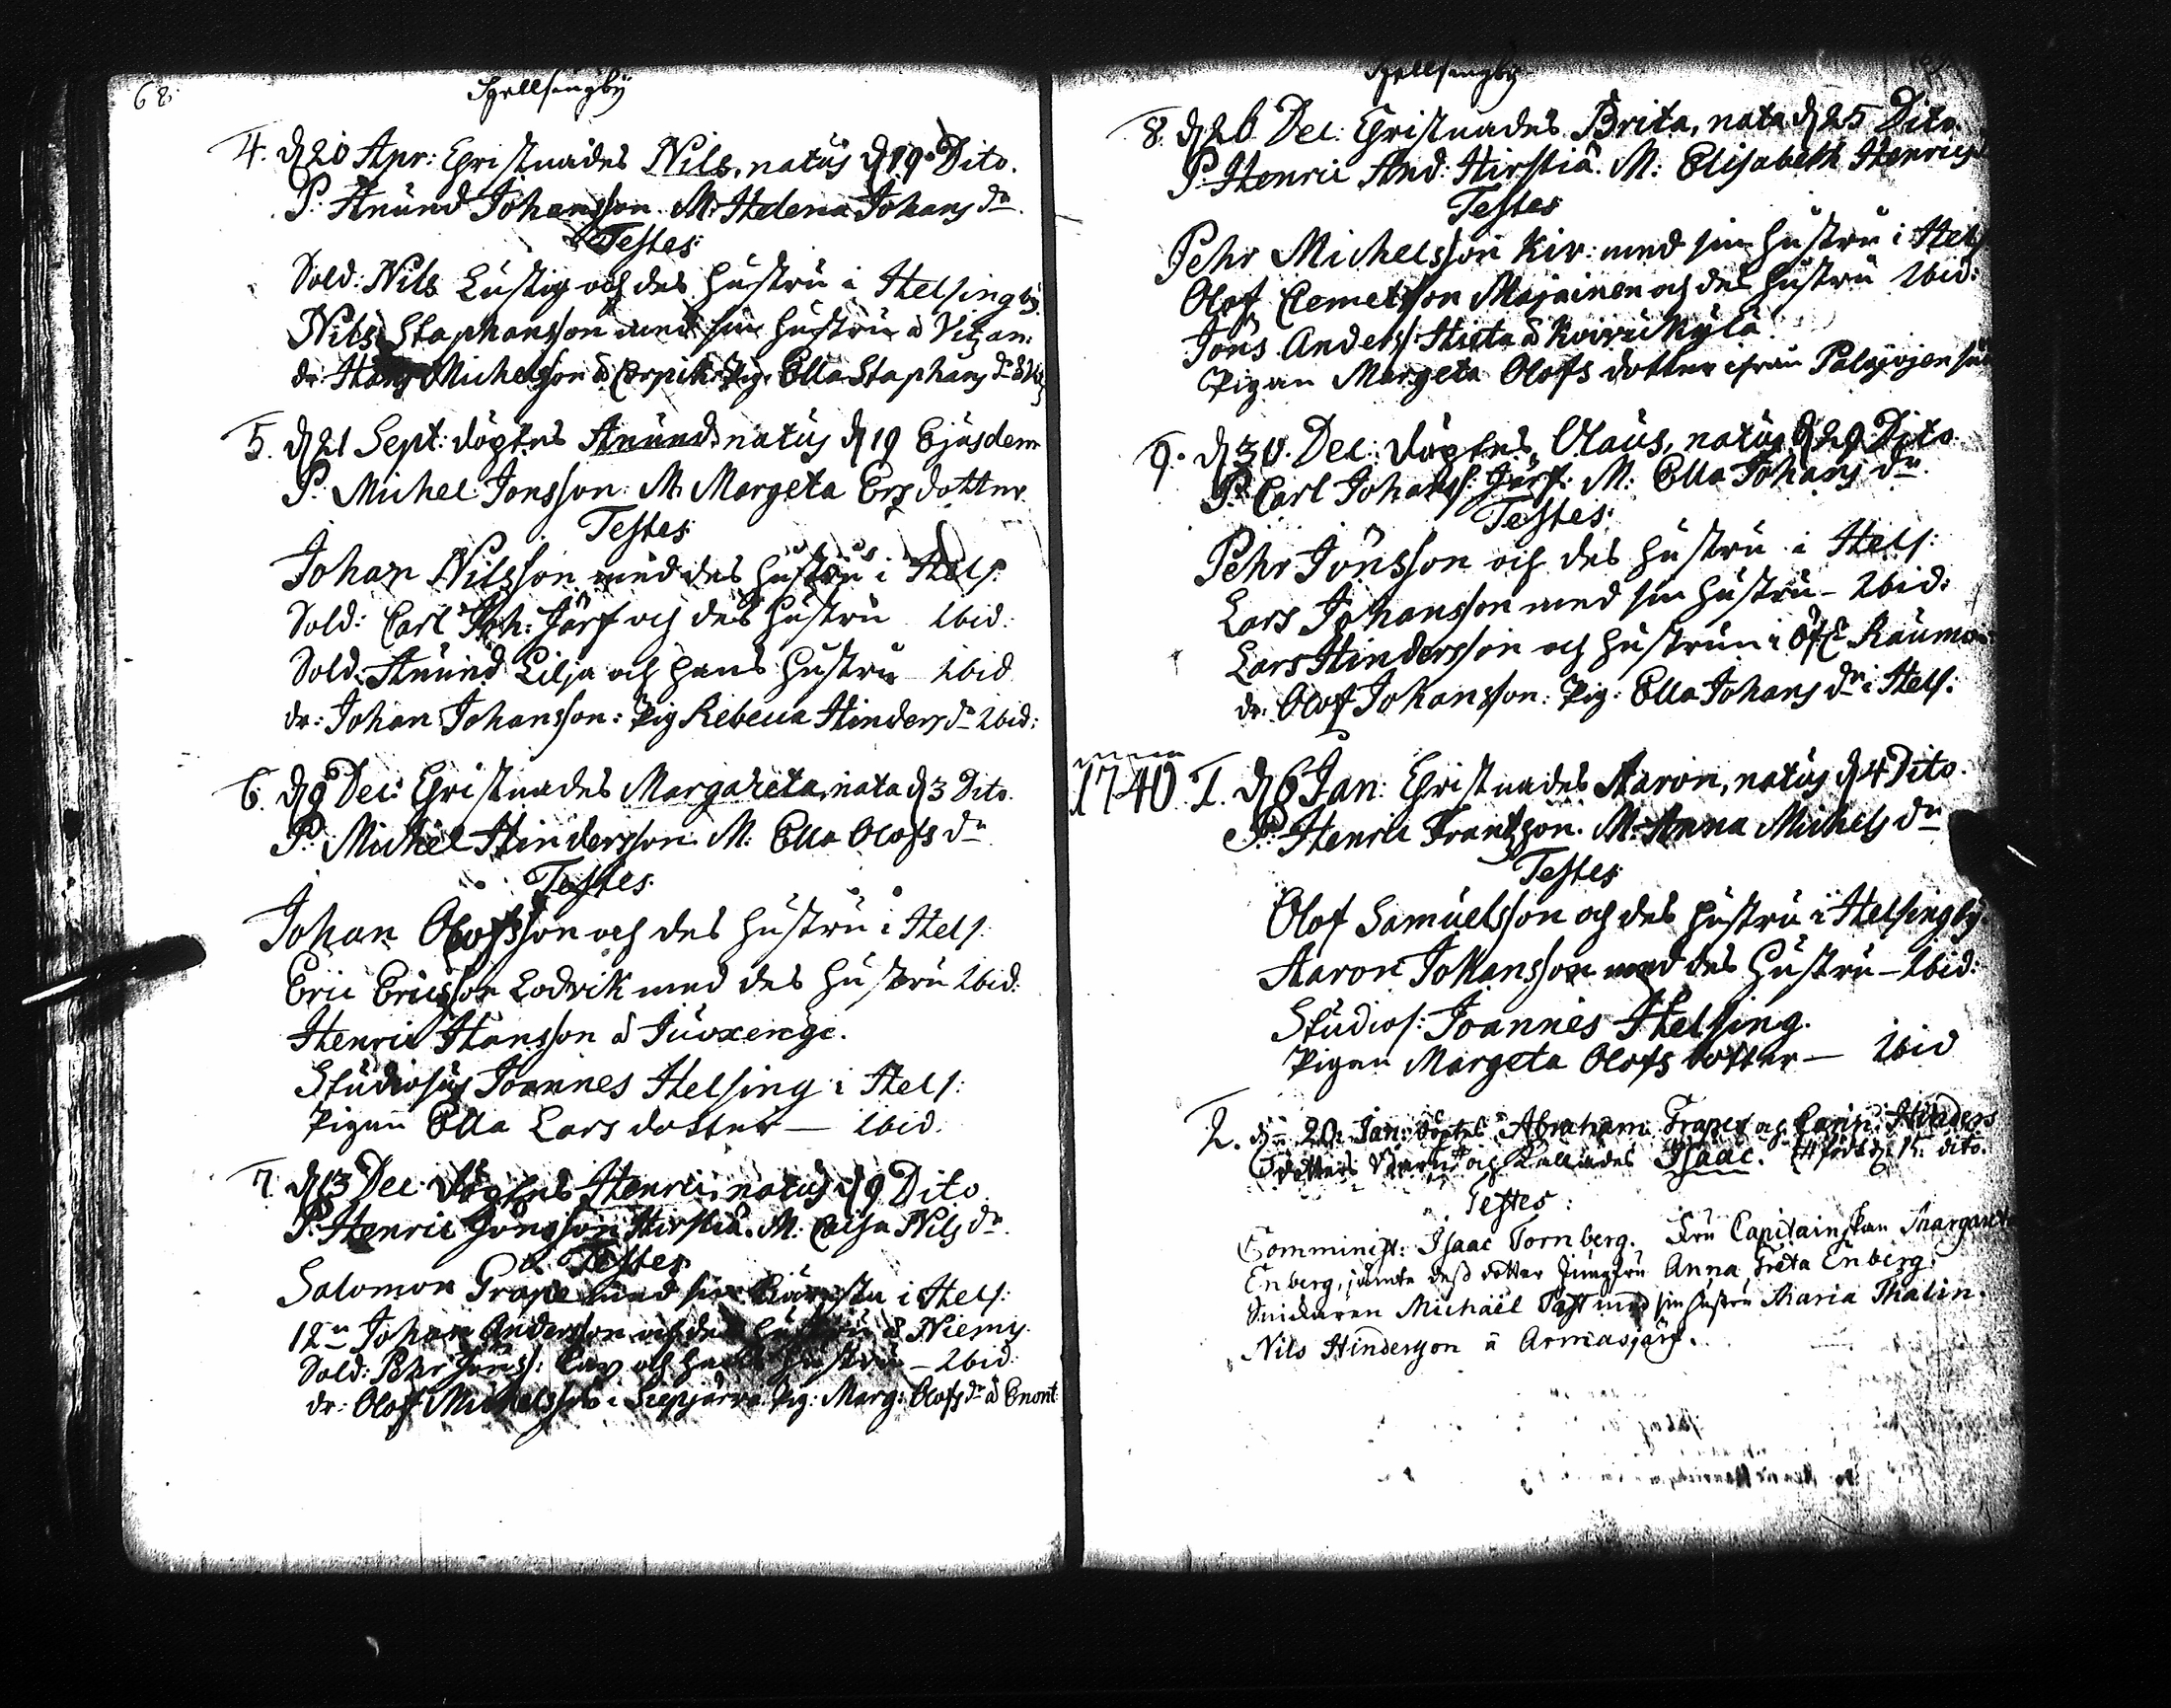 68.
Hellsingby
4. d. 20 Apr: Christnades Nils, natus d. 19 Dito.
P. Anund Johansson. M. Helena Johans dr.
Testes:
Sold: Nils Lustig och des hustru i Helsingby.
Nils Staphansson med sin hustru å Vitzan:
dr. Hans Michelsson å Corpik. Pig. Ella Staphans dr
5. d. 21 Sept: döptes Anund natus d. 19 Ejusdem
P. Michel Jonsson: M. Margeta Ersdotter
Testes:
Johan Nilsson med des hustru i Hels:
Sold: Carl Joh: Järf och des hustru Ibid:
Sold: Anund Lilja och hans hustru Ibid
dr: Johan Johansson: Pig Rebecca Hinders dr Ibid:
6. d. 9 Dec: Christnades Margareta, nata d. 3 Dito.
P. Michel Hindersson. M. Ella Olofs dr
Testes:
Johan Olofsson och des hustru i Hels:
Eric Ericsson Lodvik med des hustru Ibid:
Henric Hansson å Juoxenge.
Studiosus Joannes Helsing i Hels:
Pigan Ella Lars dotter — ibid.
7. d. 13 Dec: döptes Henric, natus d. 9 Dito
P. Henric Jönsson Hirstiä. M. Calsa Nils dr.
Testes
Salomon Grape med sin hustru i Hels:
12n Johan Andersson och des hustru å Niemis
Sold: Pehr Jöns: och hans hustru — Ibid:
dr: Olof Michelsson i Siepjärvi. Pig: Marg: Olofs dr å Enont
Hellsingby
8. d. 26 Dec: Christnades Brita, nata d. 25 Dito.
P. Henric And: Hirstiä. M: Elisabeth Henrics
Testes
Pehr Michelsson Kiv: med sin hustru i Hels
Olof Clemetsson Majainen och des hustru Ibid:
Jöns Anders: Hieta å Koivukylä
Pigan Margeta Olofs dotter ifrån
9. d. 30. Dec: döptes Olaus, natus d. 29 Dito
P. Carl Johans: Järf: M: Ella Johans dr.
Testes:
Pehr Jönsson och des hustru i Hels:
Lars Johansson med sin hustru — Ibid:
Lars Hindersson och hustrun i Öfr Raumo
dr: Olof Johansson: Pig: Ella Johans dr i Hels:
1740 1. d. 6 Jan: Christnades Aaron, natus d. 4 Dito.
P. Henric Frantzson. M. Anna Michels dr
Testes
Olof Samuelsson och des hustru i Helsingby
Aaron Johansson med des hustru — Ibid:
Studios: Joannes Helsing.
Pigan Margeta Olofs dotter — Ibid
2. dn 20. Jan: döptes Abraham Grapes och Carin Hinders
dotters barn och kallades Isaac. född d. 15. dito.
Testes:
Comminist: Isaac Tornberg. Fru Capitainskan Margareta
Enberg, jämte dess dotter Jungfru Anna Greta Enberg.
Snickaren Michaël Tast med sin hustru Maria Thalin.
Nils Hindersson å Armasjärf.